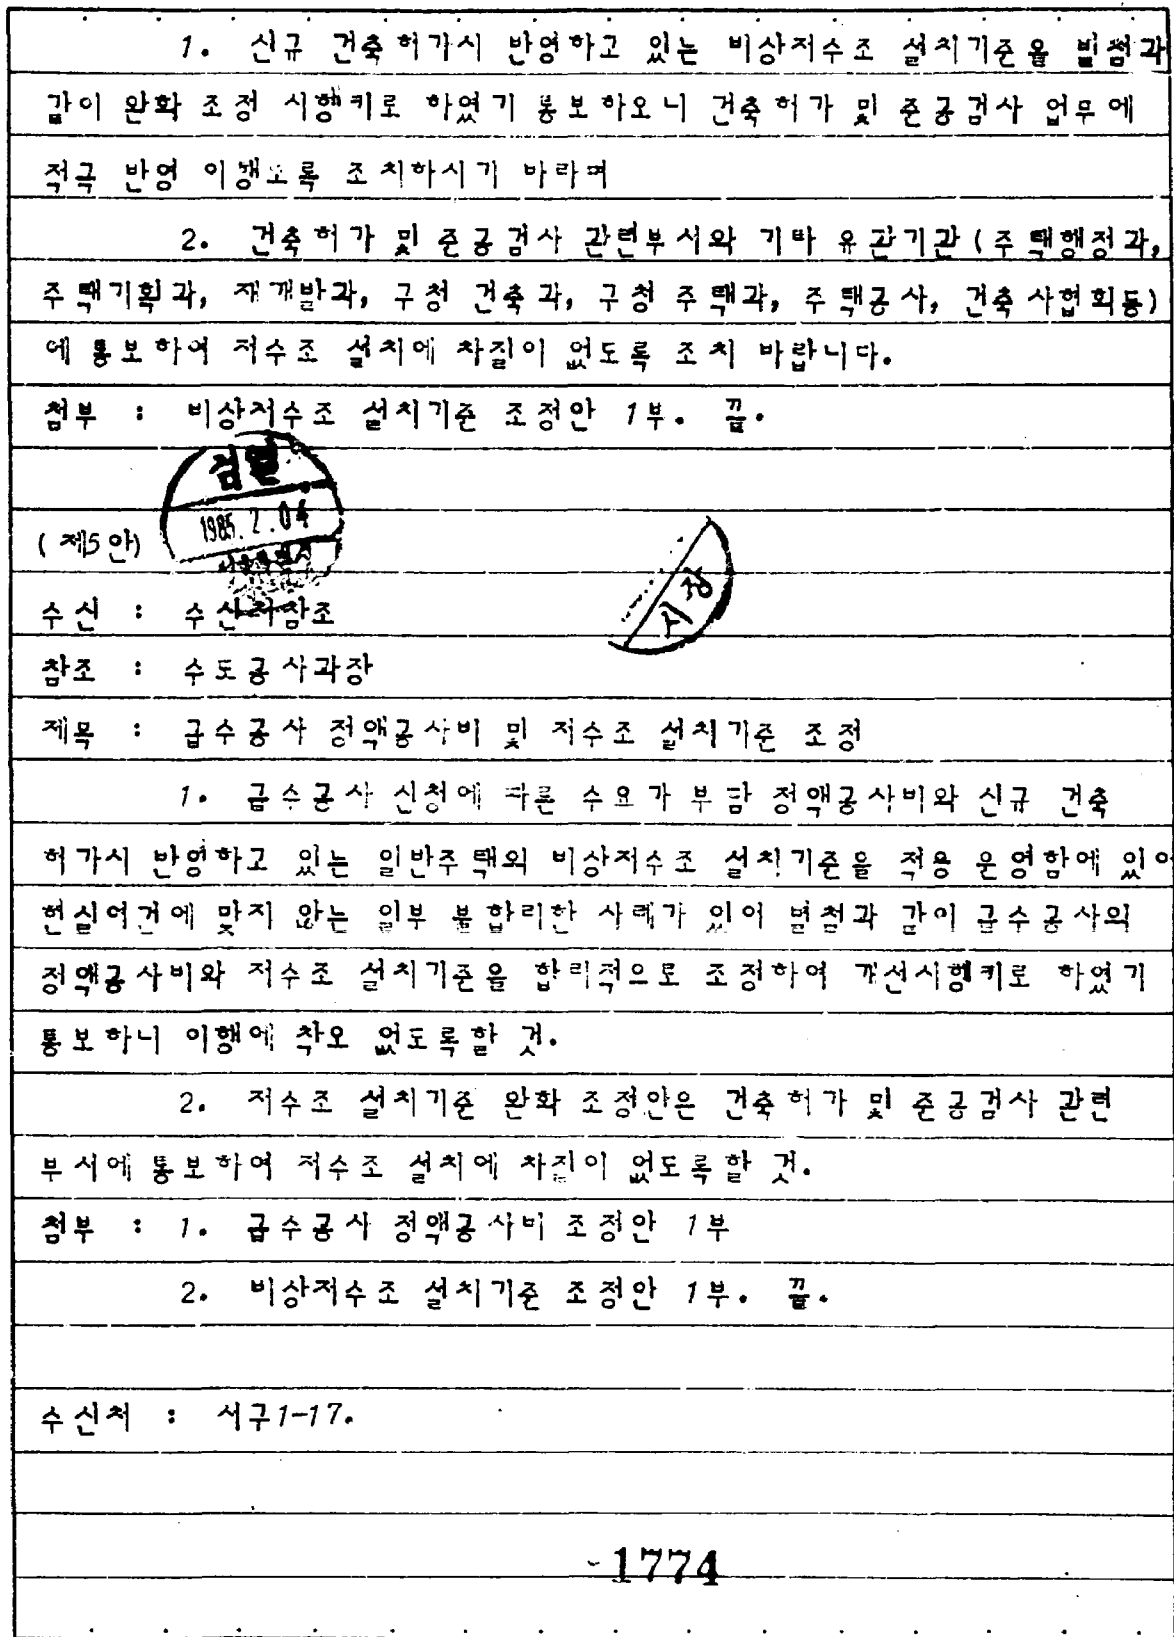 1. 신규 건축허가시 반영하고 있는 비상저수조 설치기준을 별첨과
같이 완화 조정 시행키로 하였기 통보하오니 건축허가 및 준공검사 업무에
적극 반영 이행토록 조치하시기 바라며
2. 건축허가 및 준공검사 관련부서와 기타 유관기관(주택행정과,
주택기획과, 재개발과, 구청 건축과, 구청 주택과, 주택공사, 건축사협회등)
에 통보하여 저수조 설치에 차질이 없도록 조치 바랍니다.
첨부 : 비상저수조 설치기준 조정안 1부. 끝.
검열
1985. 2. 04
(제5안)
시장
수신 : 수신처참조
참조 : 수도공사과장
제목 : 급수공사 정액공사비 및 저수조 설치기준 조정
1. 급수공사 신청에 따른 수요가 부담 정액공사비와 신규 건축
허가시 반영하고 있는 일반주택의 비상저수조 설치기준을 적용 운영함에 있어
현실여건에 맞지 않는 일부 불합리한 사례가 있어 별첨과 같이 급수공사의
정액공사비와 저수조 설치기준을 합리적으로 조정하여 개선시행키로 하였기
통보하니 이행에 착오 없도록할 것.
2. 저수조 설치기준 완화 조정안은 건축허가 및 준공검사 관련
부서에 통보하여 저수조 설치에 차질이 없도록할 것.
첨부 : 1. 급수공사 정액공사비 조정안 1부
2. 비상저수조 설치기준 조정안 1부. 끝.
수신처 : 서구1-17.
1774